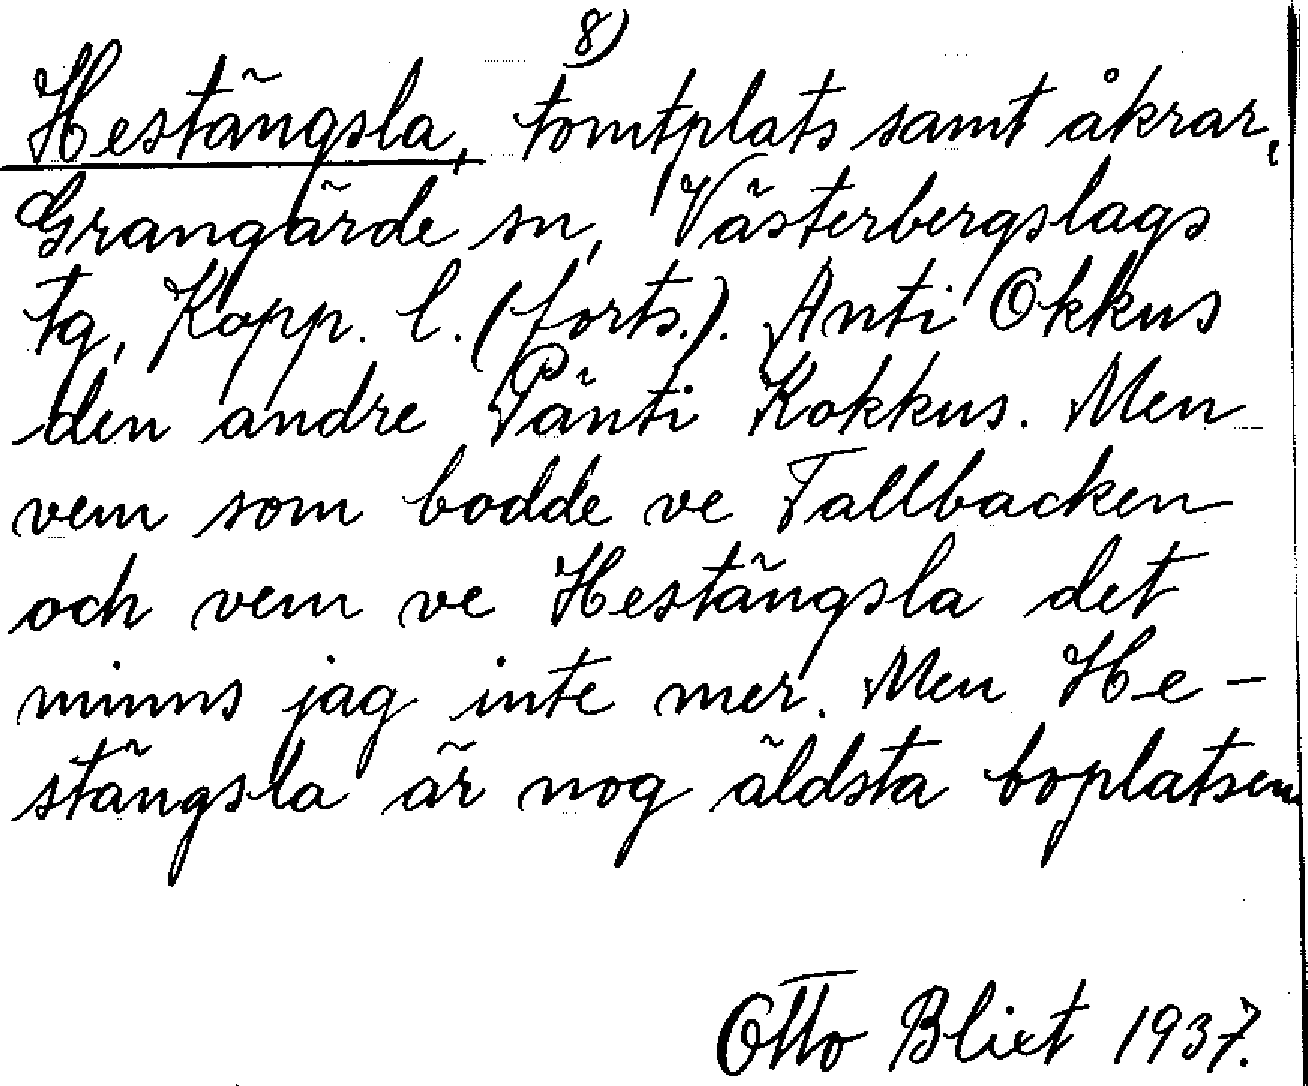 8)
Hestängsla, tomtplats samt åkrar,
Grangärde sn, Västerbergslags
tg, Kopp. l. (forts.). Anti Okkus
den andre Pänti Kokkus. Men
vem som bodde ve Tallbacken
och vem ve Hestängsla det
minns jag inte mer. Men He-
stängsla är nog äldsta boplatsen
Otto Blixt 1937.